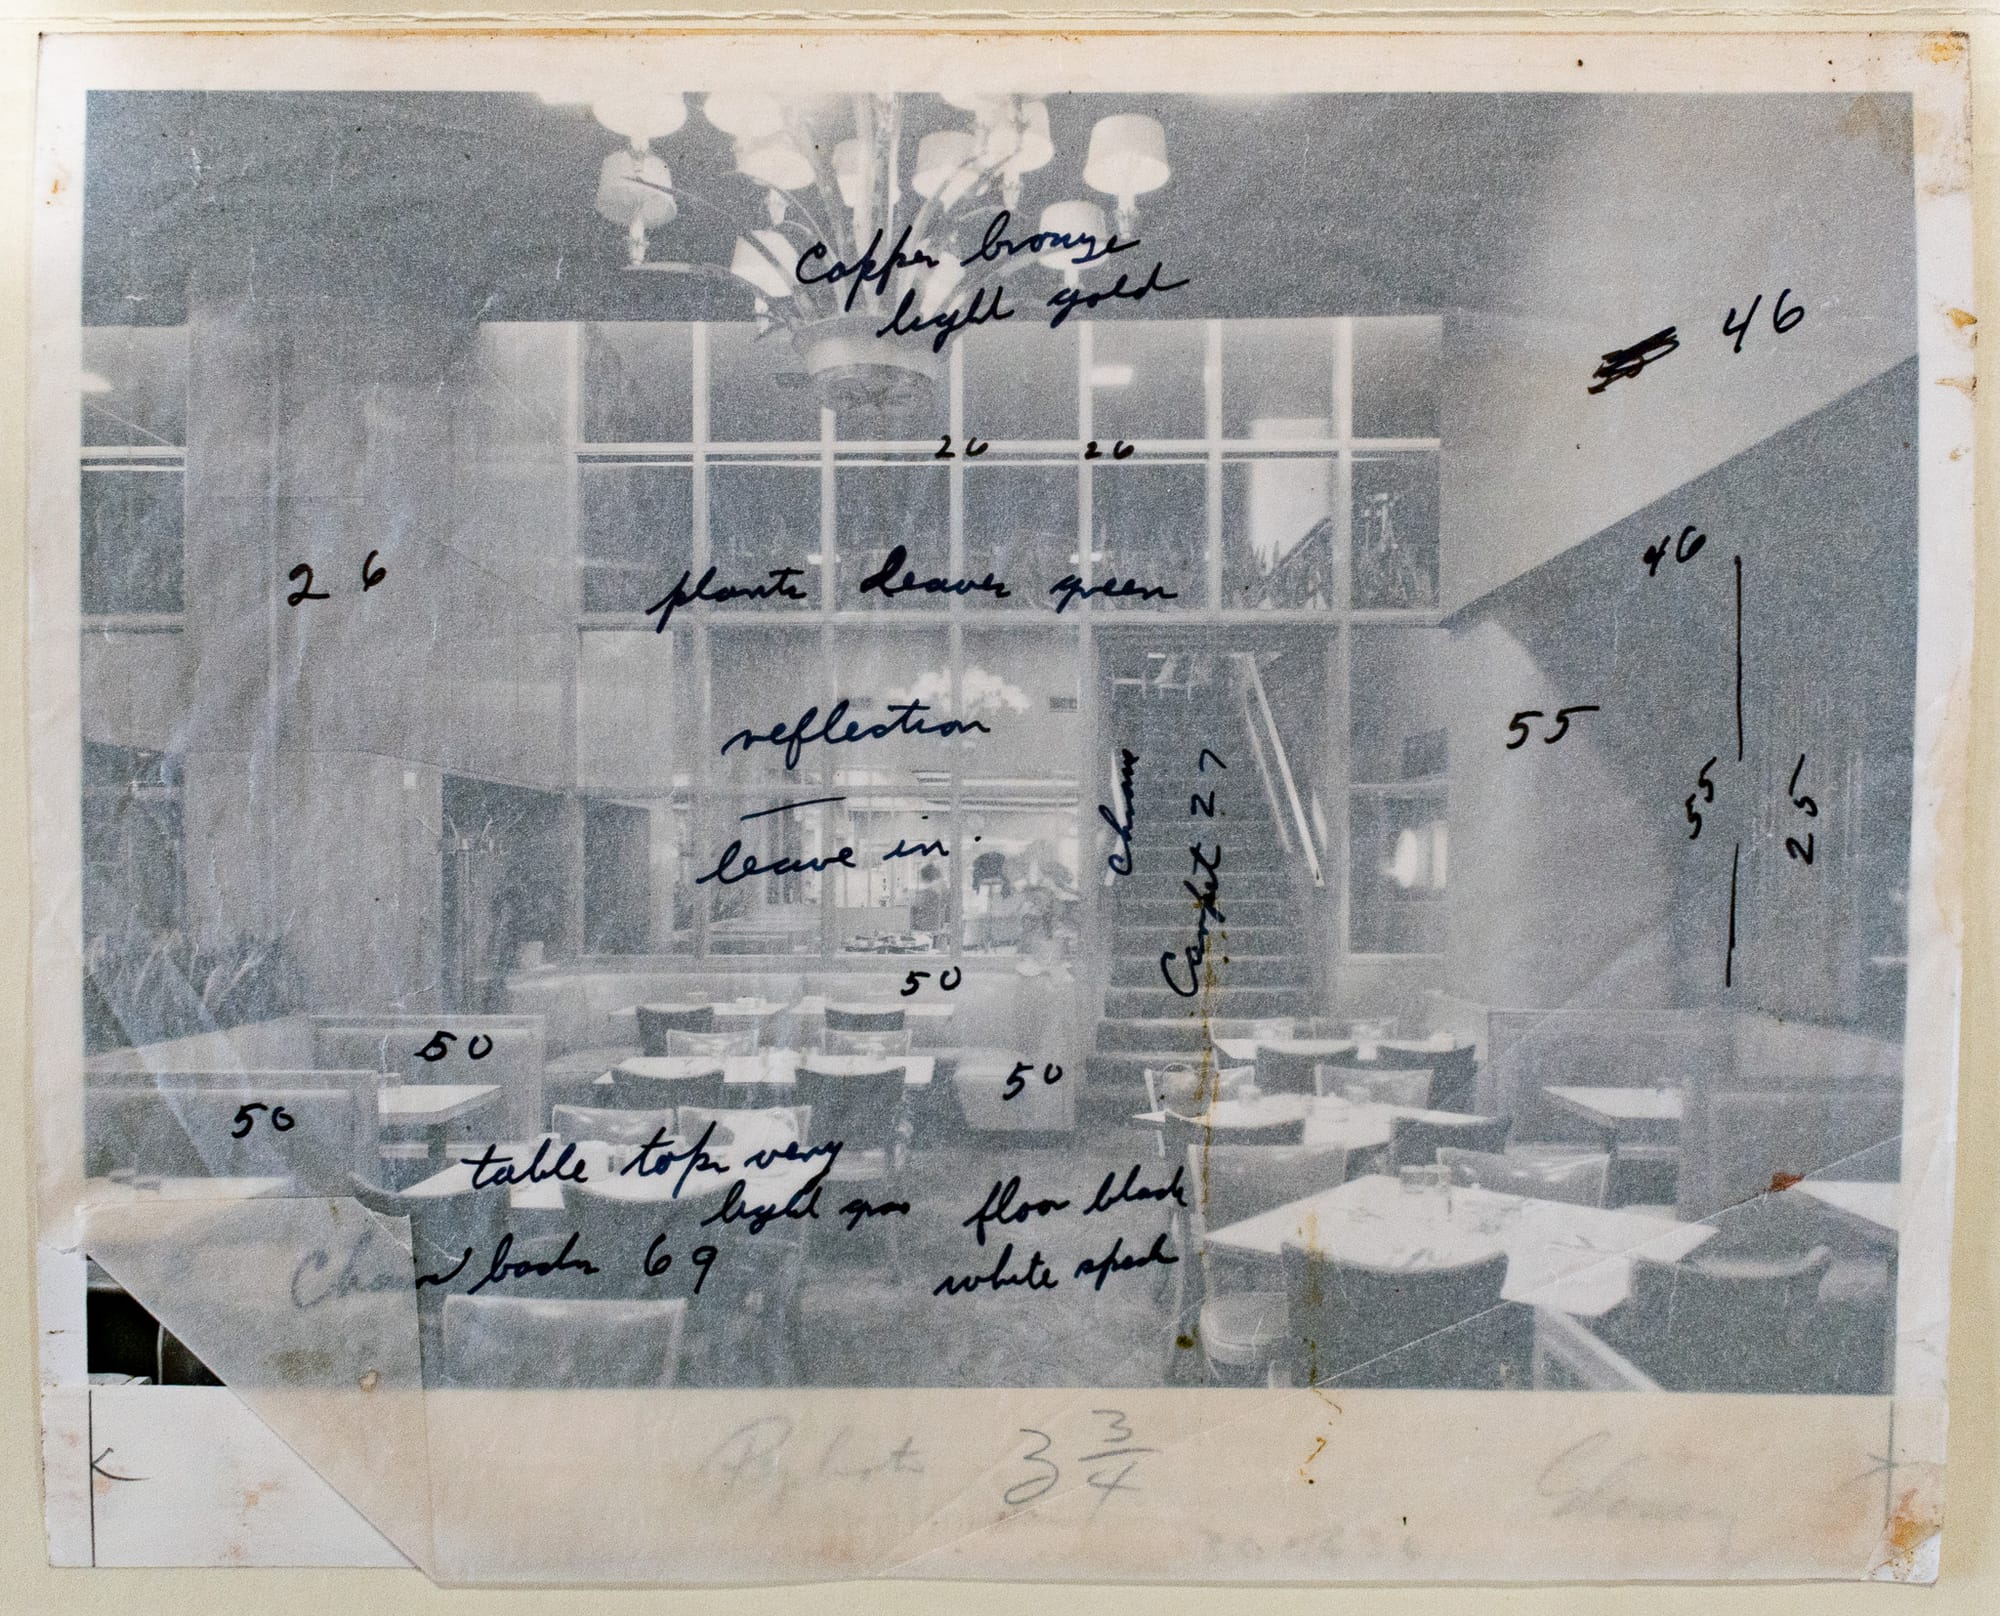 Copper bronze
light gold
46
26 26
46
26
plants leaves green
55
reflection
leave in
chrome
Carpet 27
55
25
50
50
50
50
table tops very
light gray
floor black
white specks
Chair backs 69
3 3/4